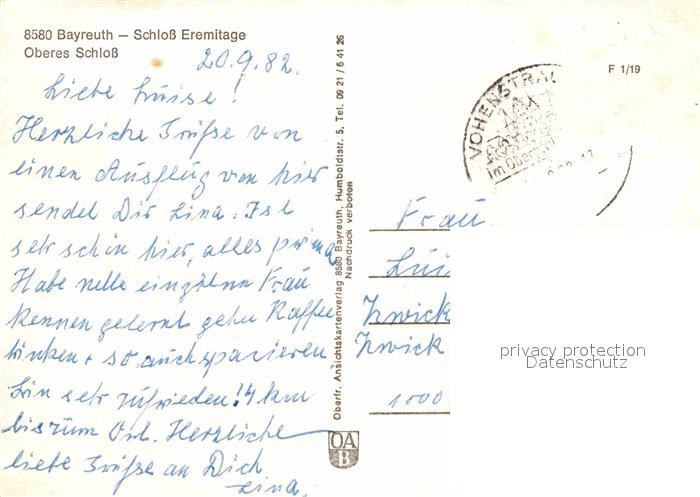 8580 Bayreuth — Schloß Eremitage
Oberes Schloß
20.9.82.
Liebe Luise!
Herzliche Grüße von
einen Ausflug von hier
sendet Dir Lina. Ist
sehr schön hier, alles prima
Habe nette einzelne Frau
kennen gelernt gehn Kaffee
trinken + so auch spazieren
bin sehr zufrieden! 4 km
bis zum Ort. Herzliche
liebe Grüße an Dich
Lina.
Oberfr. Ansichtskartenverlag 8580 Bayreuth, Humboldtstr. 5, Tel. 09 21 / 6 41 26
Nachdruck verboten
OA
B
F 1/19
VOHENSTRAU
im Oberpf
Frau
Lui
Zwick
Zwick
1000
privacy protection
Datenschutz